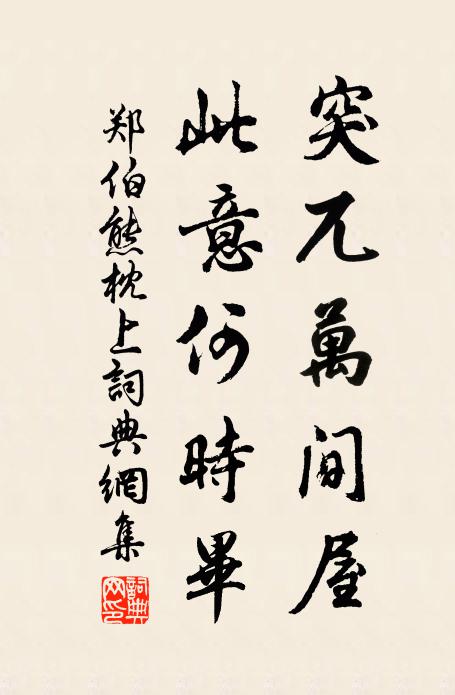 突兀萬间屋
此意何時畢
郑伯熊枕上詞典網集